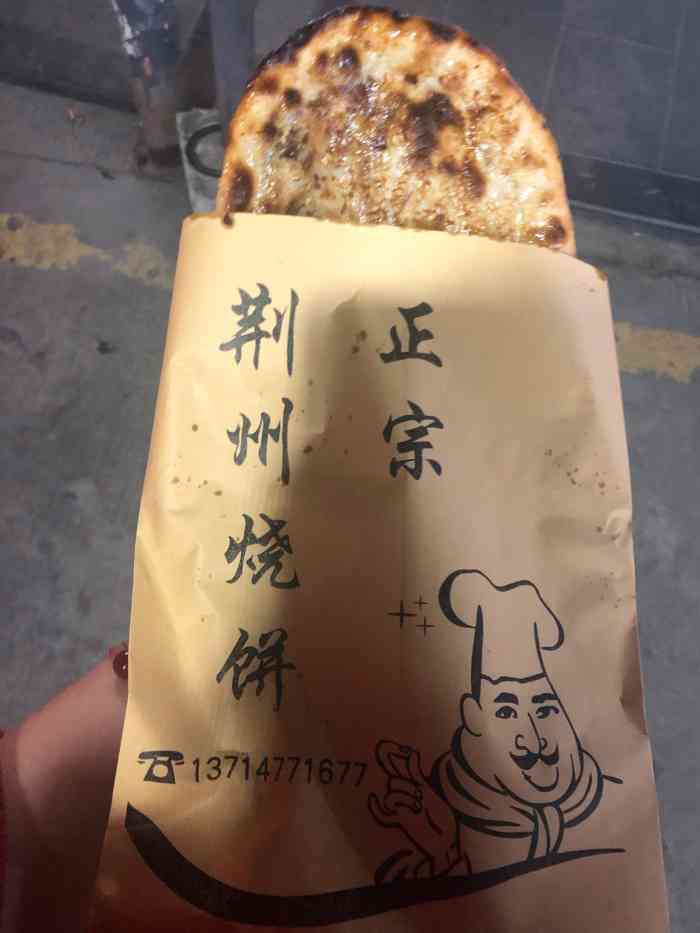 正宗
荆州烧饼
☎13714771677